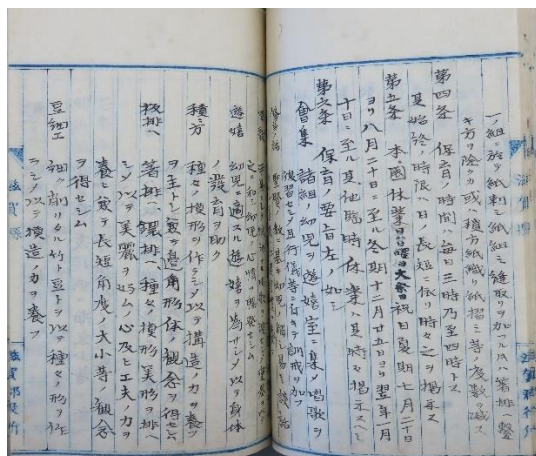 ノ組ニ於テ紙刺シ紙組ミ縫取リヲ加フルハ箸排ヘ
キ方ヲ除クカ或ハ積方紙織リ紙摺ミ等ノ度数ヲ減ス
第四条 保育ノ時間ハ毎日三時乃至四時トス
其始終ノ時限ハ日ノ長短ニ依リ時々之ヲ掲示ス
第五条 本園休業日ハ日曜日大祭日祝日夏期七月二十日
ヨリ八月二十日ニ至ル冬期十二月廿五日ヨリ翌年一月
十日ニ至ル其他臨時休業ハ其時々掲示スヘシ
第六条 保育ノ要旨左ノ如シ
會集 諸組ノ幼児ヲ遊嬉室ニ集メ唱歌ヲ
復習セシメ且行儀等ニ付キテ訓戒ヲ加フ
遊嬉 幼児ニ適スル遊嬉ヲ為サシメ以テ身体
ノ發育ヲ助ク
積ミ方 種々ノ模形ヲ作ラシメ以テ構造ノ力ヲ養フ
ヲ主トシ兼テ邊角形体ノ觀念ヲ得セシム
板排ヘ 箸排ヘ鐶排ヘ種々ノ模形美形ヲ排ヘ
シメ以テ美麗ヲ好ム心及ヒ工夫ノ力ヲ
養ヒ兼テ長短角度ノ大小等ノ觀念
ヲ得セシム
豆細工 細ク削リタル竹ト豆トヲ以テ種々ノ形ヲ作
ラシメ以テ模造ノ力ヲ養フ
滋賀縣